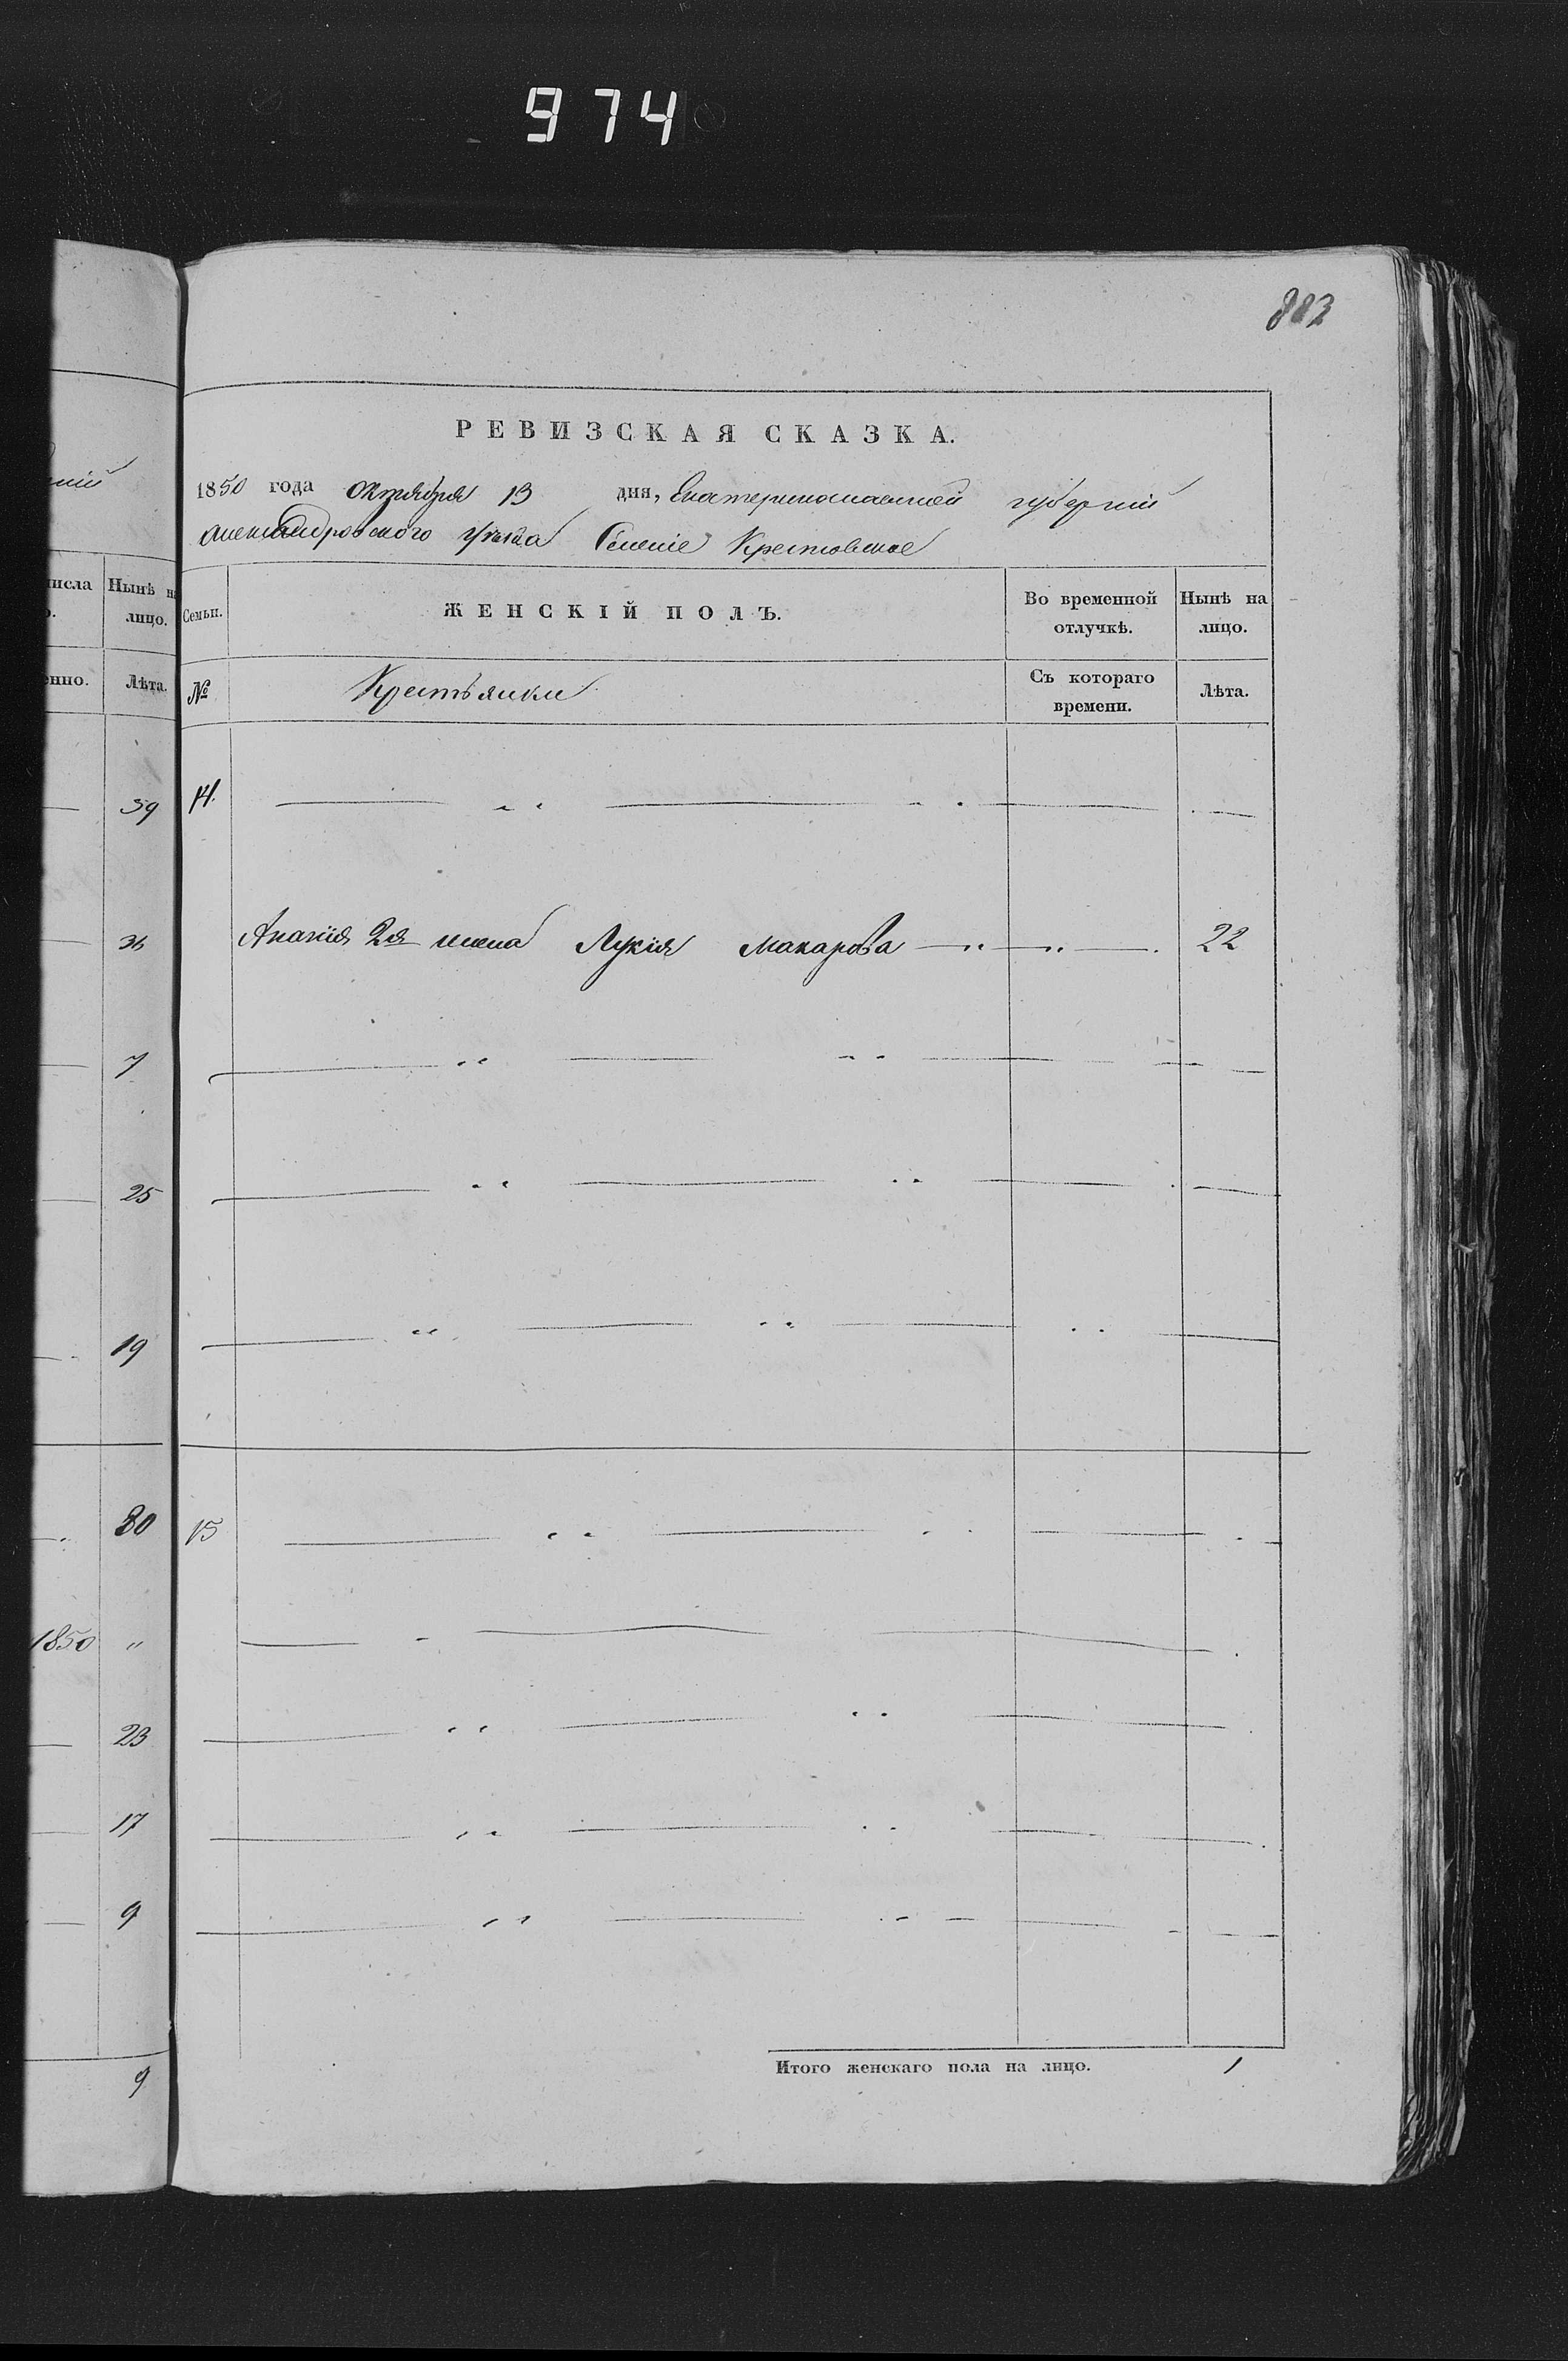 974
883
РЕВИЗСКАЯ СКАЗКА.
1850 года Октября 13 дня, Екатеринославской губерніи
Александровского уѣзда Селеніе Крестовское
числа
Нынѣ на лицо.
Лѣта.
Семьи.
ЖЕНСКІЙ ПОЛЪ.
Во временной отлучкѣ.
Нынѣ на лицо.
№
Крестьянки
Съ котораго времени.
Лѣта.
59 14.
36 Ананія 2я жена Лукія Макарова 22
7
25
19
80 15
1850 "
23
17
9
Итого женскаго пола на лицо. 1
9